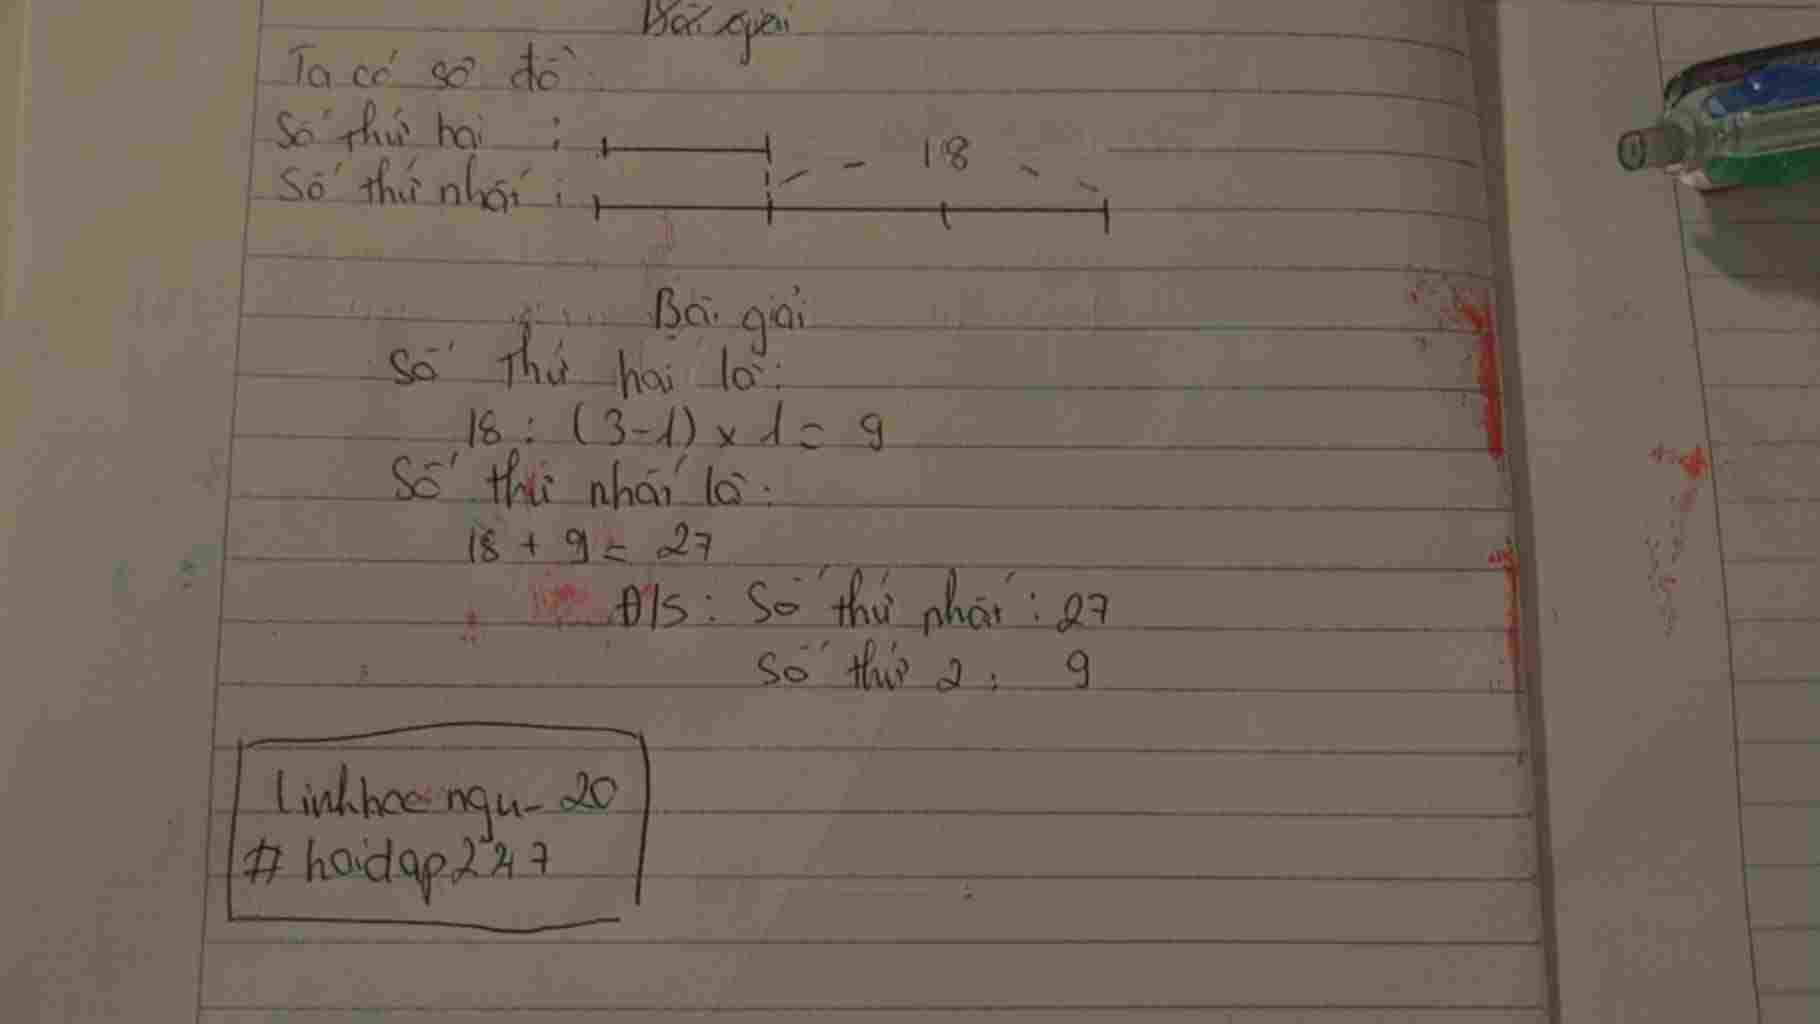 Bài giải
Ta có sơ đồ:
Số thứ hai :
18
Số thứ nhất :
Bài giải
Số thứ hai là:
18 : (3-1) x 1 = 9
Số thứ nhất là:
18 + 9 = 27
Đ/S: Số thứ nhất : 27
Số thứ 2 : 9
linhhocngu-20
#hoidap247